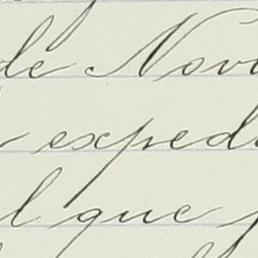 de Nov
exped
l que